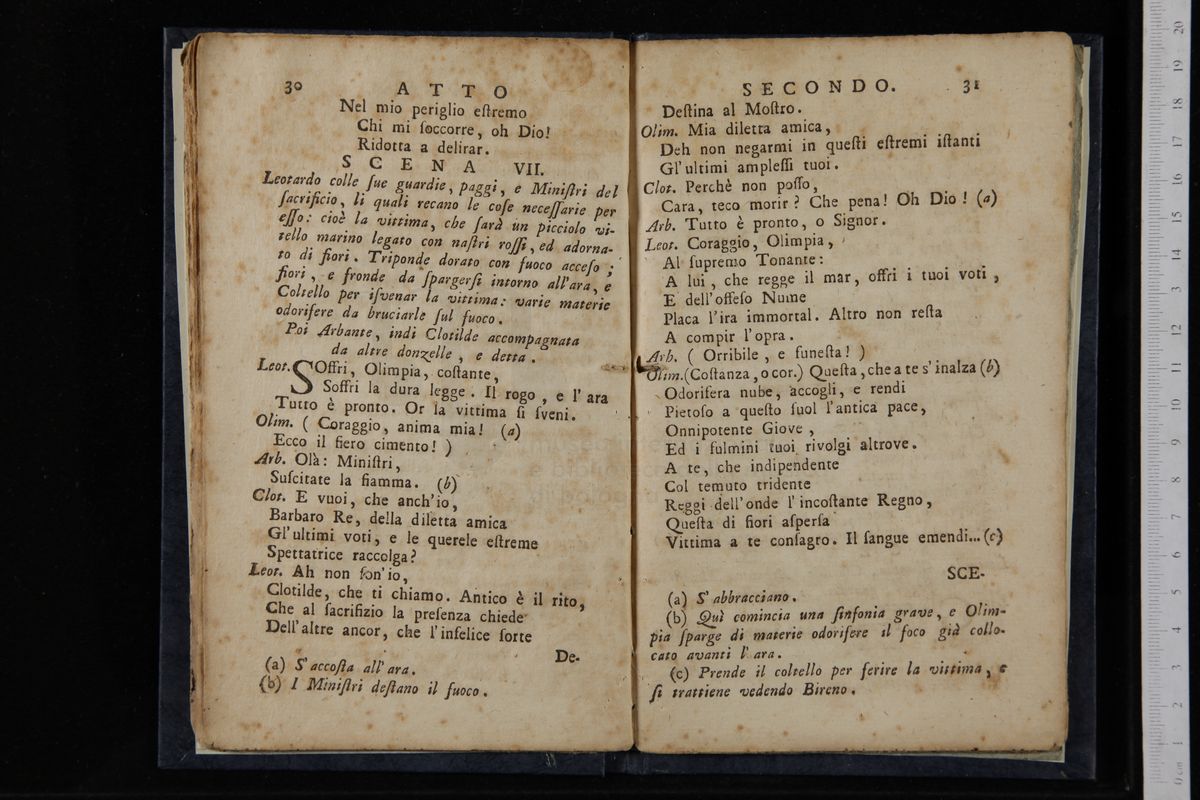 30 ATTO
Nel mio periglio eſtremo
Chi mi ſoccorre, oh Dio!
Ridotta a delirar.
SCENA VII.
Leotardo colle ſue guardie, paggi, e Miniſtri del
ſacrificio, li quali recano le coſe neceſſarie per
eſſo: cioè la vittima, che ſarà un picciolo vi-
tello marino legato con naſtri roſſi, ed adorna-
to di fiori. Triponde dorato con fuoco acceſo;
fiori, e fronde da ſpargerſi intorno all'ara, e
Coltello per iſvenar la vittima: varie materie
odorifere da bruciarle ſul fuoco.
Poi Arbante, indi Clotilde accompagnata
da altre donzelle, e detta.
Leot. SOffri, Olimpia, coſtante,
Soffri la dura legge. Il rogo, e l'ara
Tutto è pronto. Or la vittima ſi ſveni.
Olim. (Coraggio, anima mia! (a)
Ecco il fiero cimento!)
Arb. Olà: Miniſtri,
Suſcitate la fiamma. (b)
Clot. E vuoi, che anch'io,
Barbaro Re, della diletta amica
Gl'ultimi voti, e le querele eſtreme
Spettatrice raccolga?
Leot. Ah non ſon'io,
Clotilde, che ti chiamo. Antico è il rito,
Che al ſacrifizio la preſenza chiede
Dell'altre ancor, che l'infelice ſorte
De-
(a) S'accoſta all'ara.
(b) I Miniſtri deſtano il fuoco.
SECONDO. 31
Deſtina al Moſtro.
Olim. Mia diletta amica,
Deh non negarmi in queſti eſtremi iſtanti
Gl'ultimi ampleſſi tuoi.
Clot. Perchè non poſſo,
Cara, teco morir? Che pena! Oh Dio! (a)
Arb. Tutto è pronto, o Signor.
Leot. Coraggio, Olimpia,
Al ſupremo Tonante:
A lui, che regge il mar, offri i tuoi voti,
E dell'offeſo Nume
Placa l'ira immortal. Altro non reſta
A compir l'opra.
Arb. (Orribile, e funeſta!)
Olim. (Coſtanza, o cor.) Queſta, che a te s'inalza (b)
Odorifera nube, accogli, e rendi
Pietoſo a queſto ſuol l'antica pace,
Onnipotente Giove,
Ed i fulmini tuoi rivolgi altrove.
A te, che indipendente
Col temuto tridente
Reggi dell'onde l'incoſtante Regno,
Queſta di fiori aſperſa
Vittima a te conſagro. Il ſangue emendi... (c)
SCE-
(a) S'abbracciano.
(b) Quì comincia una ſinfonia grave, e Olim-
pia ſparge di materie odorifere il foco già collo-
cato avanti l'ara.
(c) Prende il coltello per ferire la vittima, e
ſi trattiene vedendo Bireno.